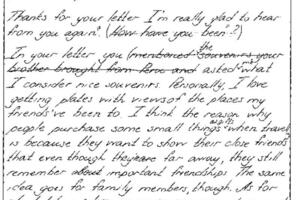 Thanks for your letter I'm really glad to hear
from you again. (How have you been?)
In your letter you (mentioned the souvenirs your
brother brought from Peru and asked what
I consider nice souvenirs. Personally, I love
getting plates with views of the places my
friends've been to. I think the reason why
people purchase some small things as gifts when travel
is because they want to show their close friends
that even though they're far away, they still
remember about important friendships. The same
idea goes for family members, though. As for